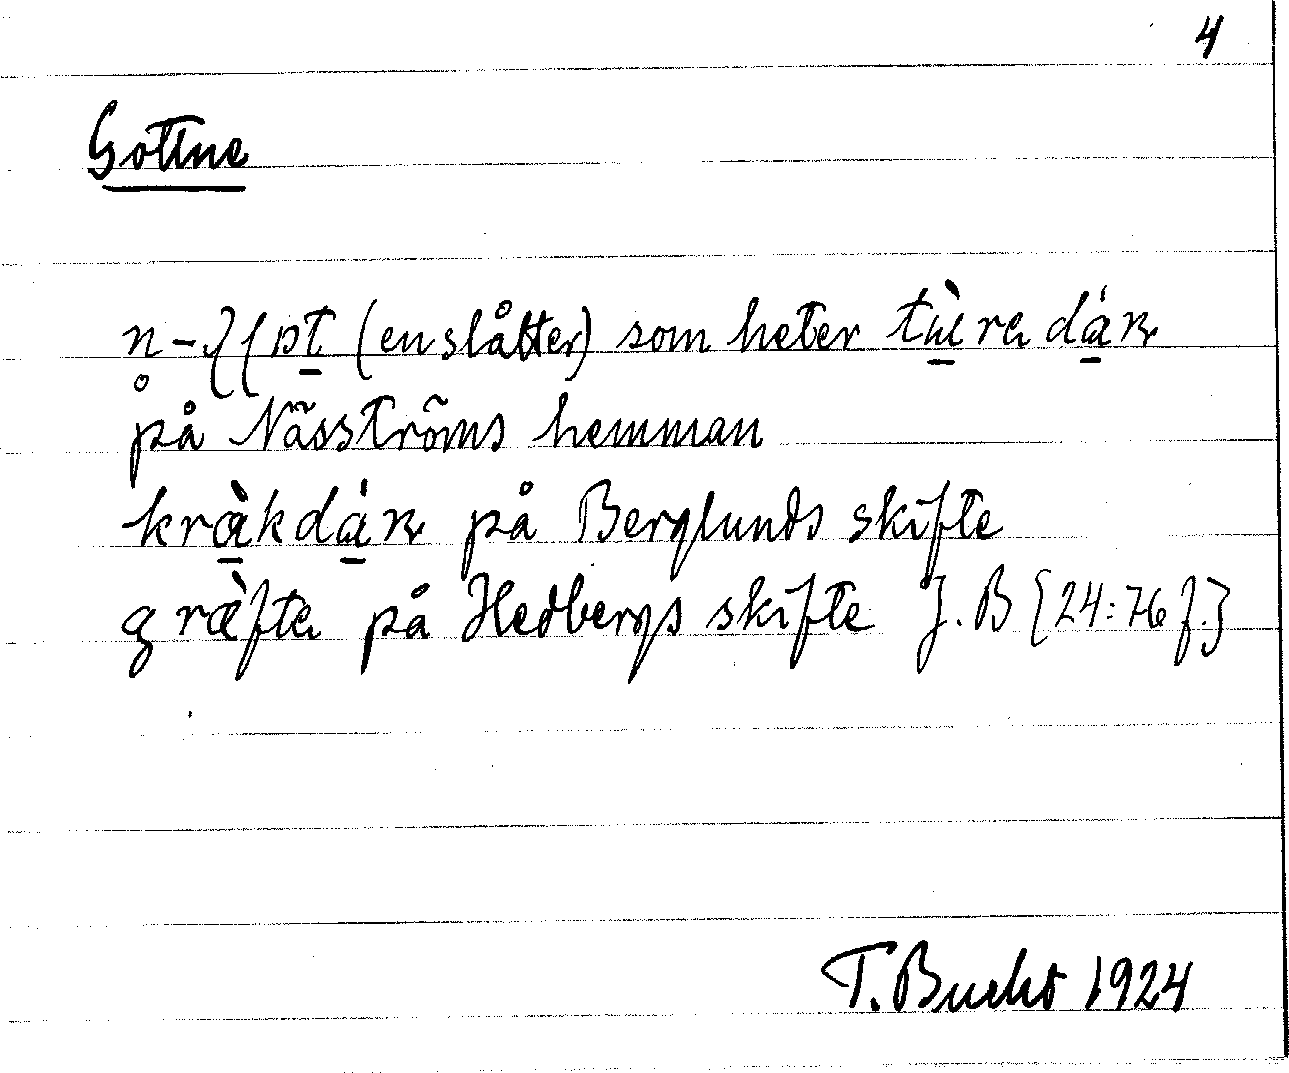 4
Gottne
(en slåtter) som heter
på Näsströms hemman
kràkdán på Berglunds skifte
på Hedbergs skifte J. B [24:76 f.]
T. Bucht 1924